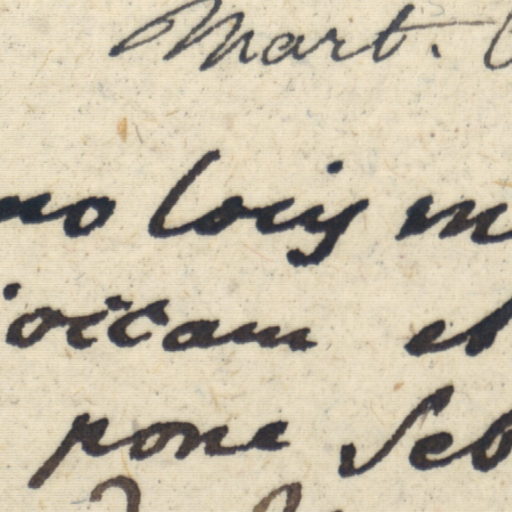 Mart.
no locis m
ioccam et
pone Seb